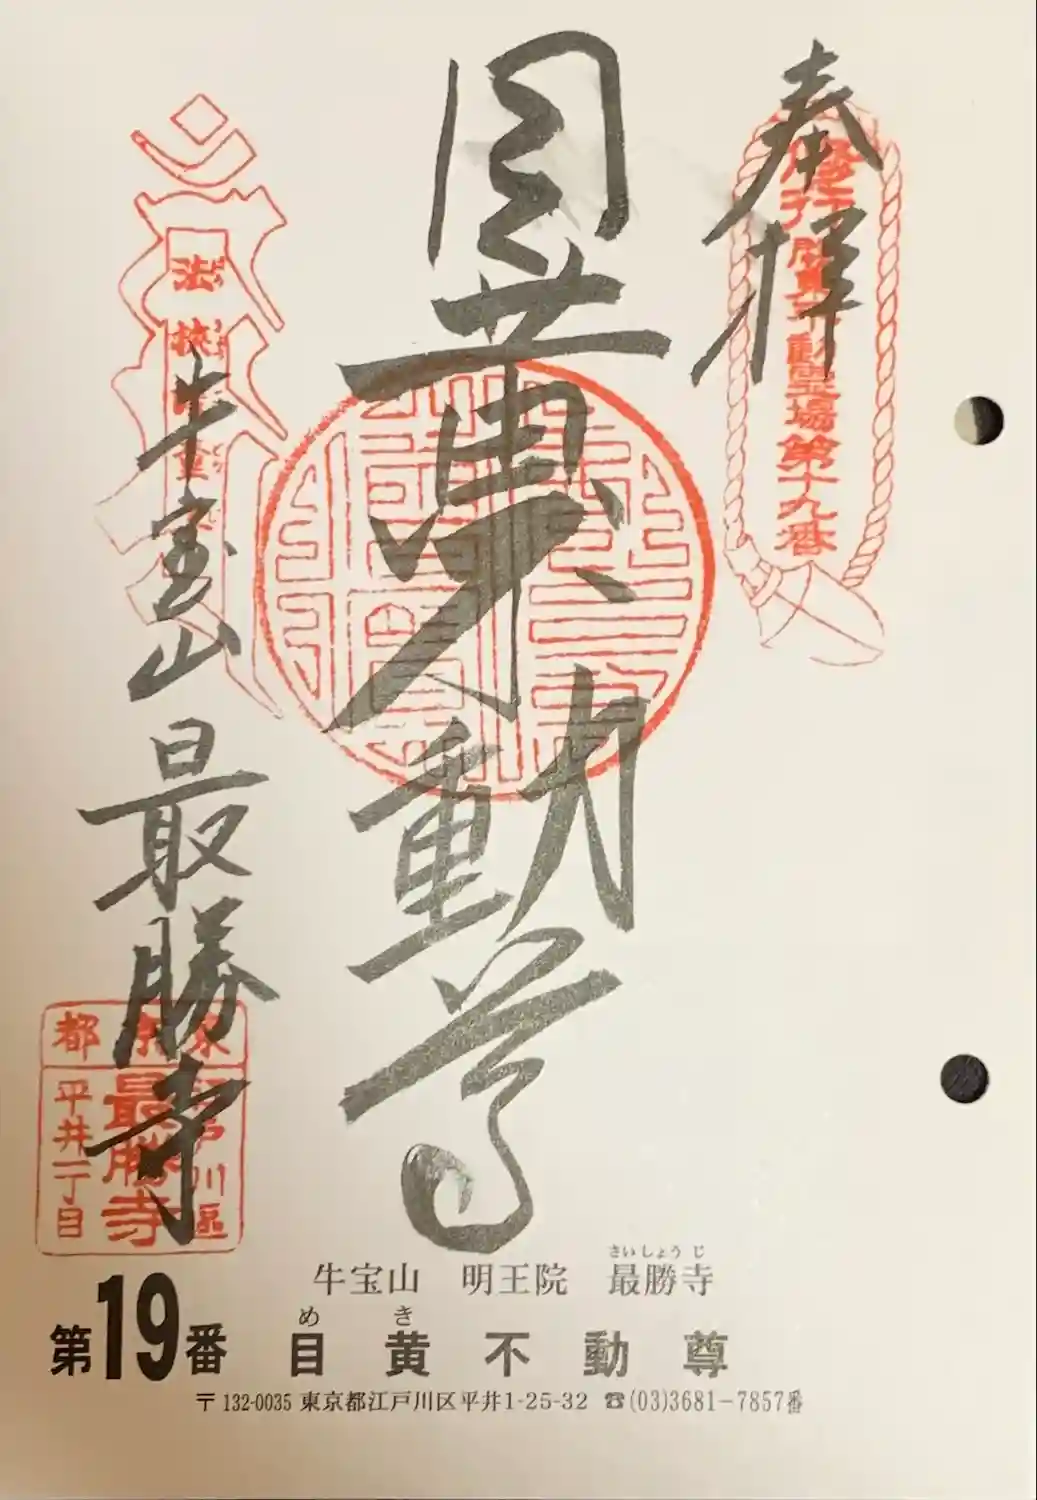 奉拝
目黄不動尊
牛宝山
最勝寺
動霊場第十九番
法
東京都
江戸川區
最勝寺
平井一丁目
さいしょうじ
牛宝山 明王院 最勝寺
めき
第19番 目黄不動尊
〒132-0035 東京都江戸川区平井1-25-32 ☎(03)3681-7857番